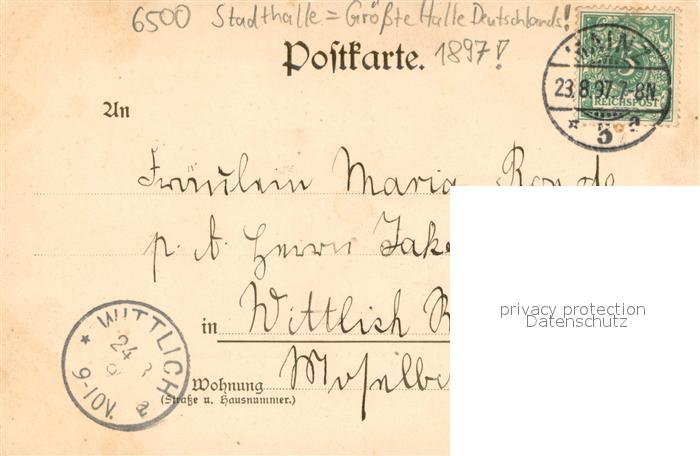 6500 Stadthalle = Größte Halle Deutschlands!
Postkarte. 1897!
MAINZ
23.8.97.7-8N.
* 5 a
5
REICHSPOST
An
Fräulein Maria
p. A. Herrn Jak
in Wittlich
Wohnung
(Straße u. Hausnummer.)
Moselbe
* WITTLICH a
24 8
9-10V.
privacy protection
Datenschutz